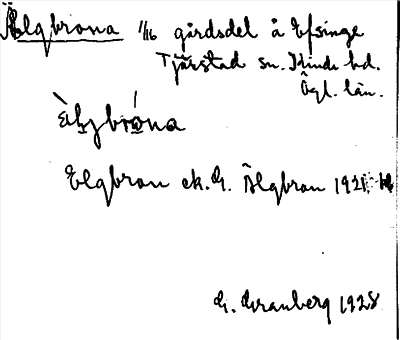 Älgbrona 1/16 gårdsdel å Efsinge
Tjärstad sn. Kinda hd.
Ögl. län.
Elgbron ek. G. Älgbron 1921
G. Granberg 1928